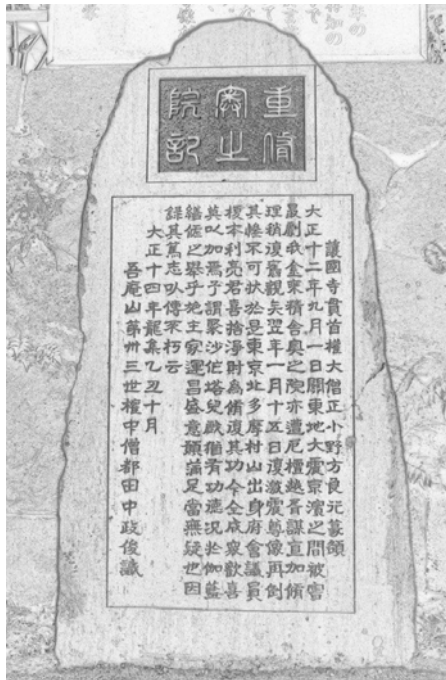 重脩
奧之
院記
護國寺貫首權大僧正小野方良元篆額
大正十二年九月一日關東地大震京濱之間被害
最劇我金乘精舍奧之院亦遭厄檀越胥謀直加脩
理稍復舊觀矣翌年一月十五日復激震尊像再倒
其慘不可状於是東京北多摩村山出身府會議員
榎本利亮君喜捨淨財為脩復其功今全成衆歡喜
莫以加焉予謂聚沙作塔兒戯猶有功德況於伽藍
繕之舉乎施主家運昌盛意願滿足當無疑也因
録其篤志以傳不朽云
大正十四年龍集乙丑十月
吾庵山第卅三世權中僧都田中政俊識